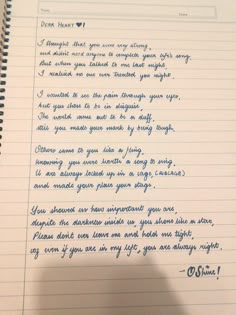 DEAR HEART ♥!
I thought that you were very strong,
and didn't need anyone to complete your life's song.
But when you talked to me last night,
I realised no one ever treated you right.
I wanted to see the pain through your eyes,
but you chose to be in disguise,
The world came out to be a
still you made your mark by being tough.
Others came to you like a fling,
knowing you were worth a song to sing,
U are always locked up in a cage,
and made your place your stage.
You showed us how important you are,
despite the darkness inside us, you shone like a star,
Please don't ever leave me and hold me tight,
coz even if you are in my left, you are always right.